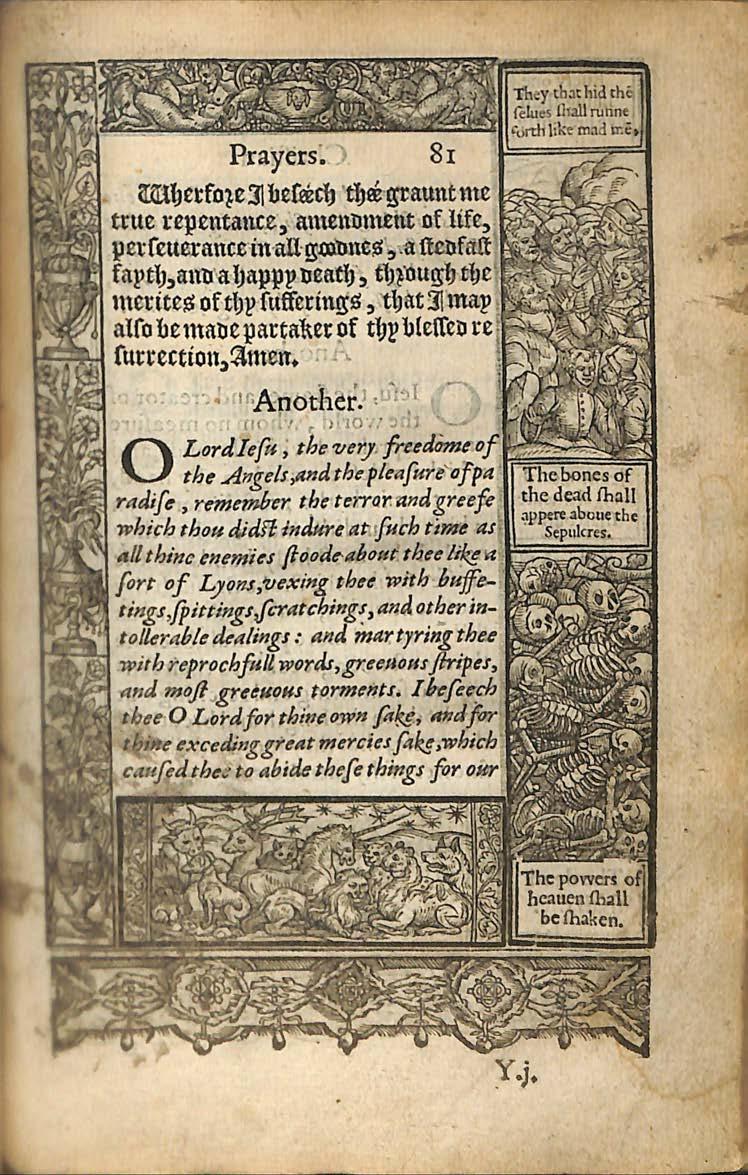 Prayers. 81
Wherfore I beséech thée graunt me
true repentance, amendment of life,
perseuerance in all goodnes, a stedfast
fayth, and a happy death, through the
merites of thy sufferings, that I may
also be made partaker of thy blessed re
surrection, Amen.
Another.
O Lord Iesu, the very freedome of
the Angels, and the pleasure of pa
radise, remember the terror and greefe
which thou didst indure at such time as
all thine enemies stoode about thee like a
sort of Lyons, vexing thee with buffe-
tings, spittings, scratchings, and other in-
tollerable dealings: and martyring thee
with reprochfull words, greeuous stripes,
and most greeuous torments. I beseech
thee O Lord for thine own sake, and for
thine exceding great mercies sake, which
caused thee to abide these things for our
They that hid thē
selues shall runne
forth like mad mē,
The bones of
the dead shall
appere aboue the
Sepulcres.
The powers of
heauen shall
be shaken.
Y.j.